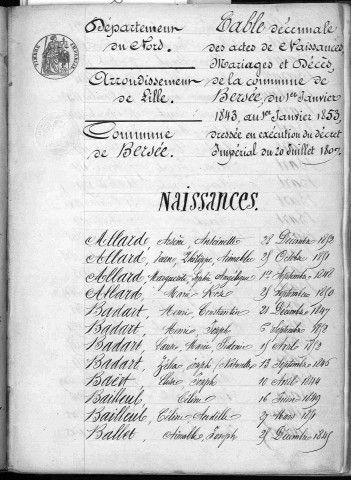 Département
du Nord.
Arrondissement
de Lille.
Commune
de Bersée.
Table décennale
des actes de Naissances,
Mariages et Décès,
de la commune de
Bersée, du 1er Janvier
1843, au 1er Janvier 1853,
dressée en exécution du décret
Impérial du 20 Juillet 1807.
NAISSANCES.
Allard, Antoinette 28 Décembre
Allard, Philippe Aimable 25 Octobre
Allard, Marguerite Sophie Angélique 1er Septembre 1848
Allard, Marie Rose 25 Septembre 1850
Badart, Henri Constantin 21 Décembre 1847
Badart, Henri Joseph 5 Septembre
Badart, Marie Sidonie Avril
Badart, Zélia Joseph 13 Septembre 1846
Baërt, Joseph 10 Avril 1844
Bailleul, Céline 16 Février 1849
Bailleul, Céline 27 Mars
Ballet, Aimable Joseph 25 Décembre 1845